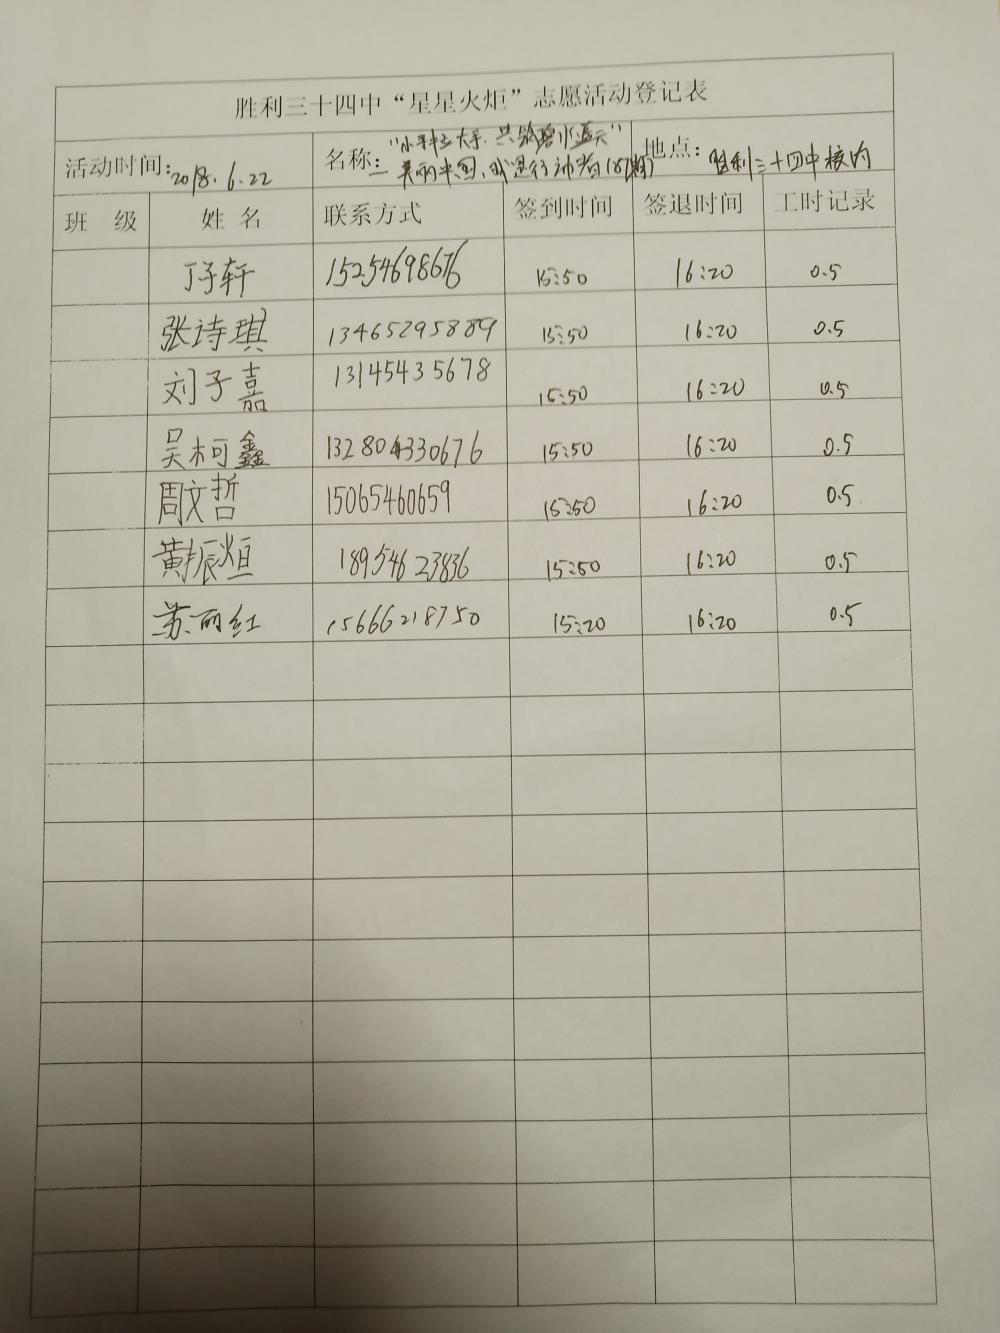 胜利三十四中“星星火炬”志愿活动登记表
活动时间:2018.6.22 名称:“小手拉大手.共绘碧水蓝天” 地点:胜利三十四中校内
—美丽中国,我是行动者
班 级 姓 名 联系方式 签到时间 签退时间 工时记录
丁子轩 15254698676 15:50 16:20 0.5
张诗琪 13465295889 15:50 16:20 0.5
刘子嘉 13145435678 15:50 16:20 0.5
吴柯鑫 132804330676 15:50 16:20 0.5
周文哲 15065460659 15:50 16:20 0.5
黄振烜 18954623836 15:50 16:20 0.5
苏丽红 15666218750 15:20 16:20 0.5